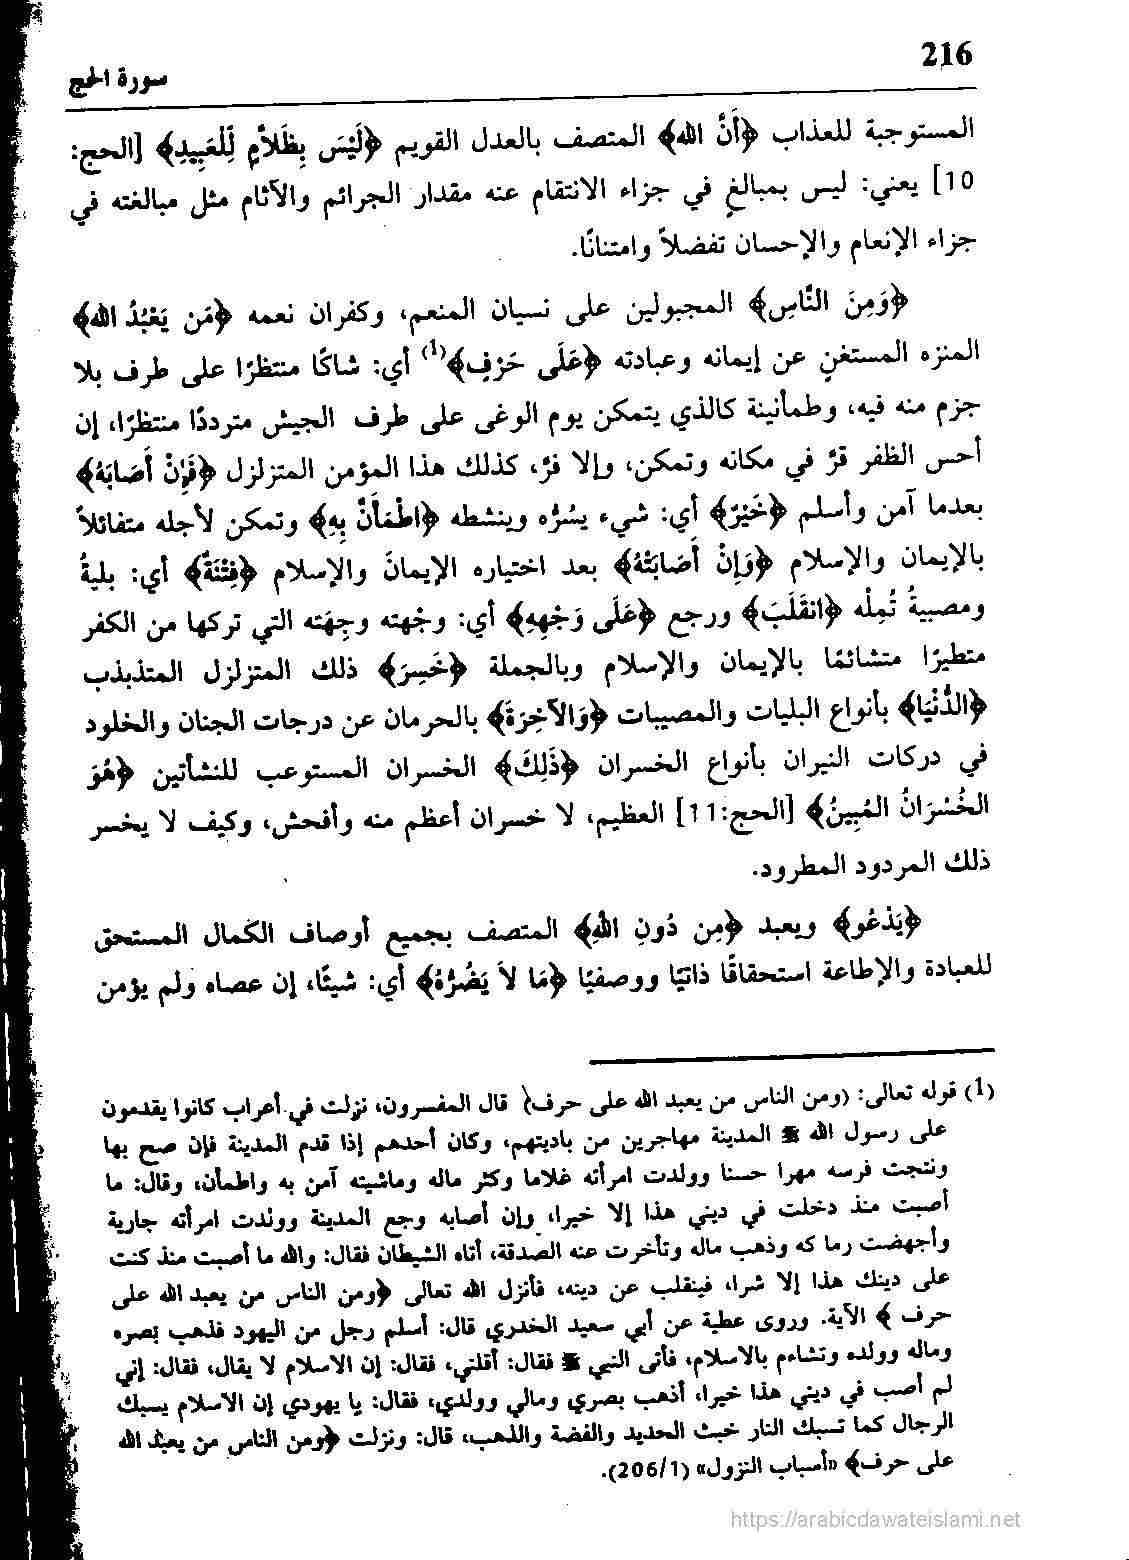 216
سورة الحج
المستوجبة للعذاب ﴿أَنَّ الله﴾ المتصف بالعدل القويم ﴿لَيْسَ بِظَلاَّمٍ لِّلْعَبِيدِ﴾ [الحج:
10] يعني: ليس بمبالغٍ في جزاء الانتقام عنه مقدار الجرائم والآثام مثل مبالغته في
جزاء الإنعام والإحسان تفضلاً وامتنانًا.
﴿وَمِنَ النَّاسِ﴾ المجبولين على نسيان المنعم، وكفران نعمه ﴿مَن يَعْبُدُ الله﴾
المنزه المستغنٍ عن إيمانه وعبادته ﴿عَلَى حَرْفٍ﴾(1) أي: شاكًا منتظرًا على طرف بلا
جزم منه فيه، وطمأنينة كالذي يتمكن يوم الوغى على طرف الجيش مترددًا منتظرًا، إن
أحس الظفر قرَّ في مكانه وتمكن، وإلا فرَّ، كذلك هذا المؤمن المتزلزل ﴿فَإِنْ أَصَابَهُ﴾
بعدما آمن وأسلم ﴿خَيْرٌ﴾ أي: شيء يسُرُّه وينشطه ﴿اطْمَأَنَّ بِهِ﴾ وتمكن لأجله متفائلاً
بالإيمان والإسلام ﴿وَإِنْ أَصَابَتْهُ﴾ بعد اختياره الإيمانَ والإسلام ﴿فِتْنَةٌ﴾ أي: بليةُ
ومصيبةُ تُمِلْه ﴿انقَلَبَ﴾ ورجع ﴿عَلَى وَجْهِهِ﴾ أي: وجْهته وجِهَته التي تركها من الكفر
متطيرًا متشائمًا بالإيمان والإسلام وبالجملة ﴿خَسِرَ﴾ ذلك المتزلزل المتذبذب
﴿الدُّنْيَا﴾ بأنواع البليات والمصيبات ﴿وَالآخِرَةَ﴾ بالحرمان عن درجات الجنان والخلود
في دركات النيران بأنواع الخسران ﴿ذَلِكَ﴾ الخسران المستوعب للنشأتين ﴿هُوَ
الخُسْرَانُ المُبِينُ﴾ [الحج:11] العظيم، لا خسران أعظم منه وأفحش، وكيف لا يخسر
ذلك المردود المطرود.
﴿يَدْعُو﴾ ويعبد ﴿مِن دُونِ اللَّهِ﴾ المتصف بجميع أوصاف الكمال المستحق
للعبادة والإطاعة استحقاقًا ذاتيًا ووصفيًا ﴿مَا لاَ يَضُرُّهُ﴾ أي: شيئًا، إن عصاه ولم يؤمن
(1) قوله تعالى: (ومن الناس من يعبد الله على حرف) قال المفسرون، نزلت في أعراب كانوا يقدمون
على رسول الله ﷺ المدينة مهاجرين من باديتهم، وكان أحدهم إذا قدم المدينة فإن صح بها
ونتجت فرسه مهرا حسنا وولدت امرأته غلاما وكثر ماله وماشيته آمن به واطمأن، وقال: ما
أصبت منذ دخلت في ديني هذا إلا خيرا، وإن أصابه وجع المدينة وولدت امرأته جارية
وأجهضت رما كه وذهب ماله وتأخرت عنه الصدقة، أتاه الشيطان فقال: والله ما أصبت منذ كنت
على دينك هذا إلا شرا، فينقلب عن دينه، فأنزل الله تعالى ﴿ومن الناس من يعبد الله على
حرف ﴾ الآية. وروى عطية عن أبي سعيد الخدري قال: أسلم رجل من اليهود فذهب بصره
وماله وولده وتشاءم بالاسلام، فأتى النبي ﷺ فقال: أقلني، فقال: إن الاسلام لا يقال، فقال: إني
لم أصب في ديني هذا خيرا، أذهب بصري ومالي وولدي، فقال: يا يهودي إن الاسلام يسبك
الرجال كما تسبك النار خبث الحديد والفضة والذهب، قال: ونزلت ﴿ومن الناس من يعبد الله
على حرف﴾ «أسباب النزول» (206/1).
https://arabicdawateislami.net